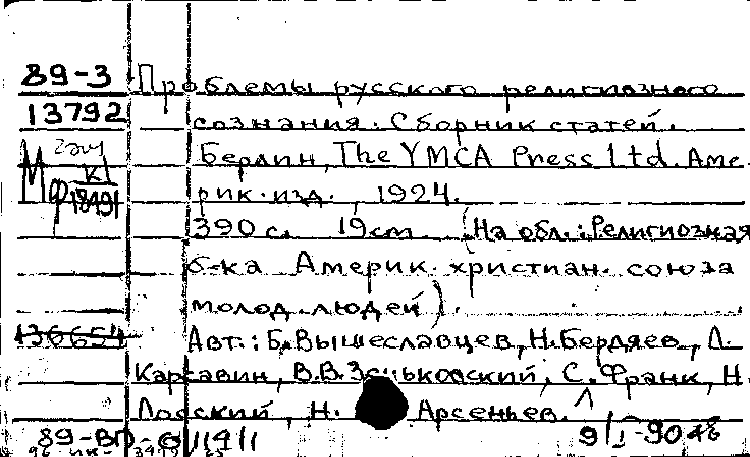 89-3 Проблемы русского религиозного
13792 сознания. Сборник статей.
Берлин, The YMCA Press Ltd. Аме-
рик. изд., 1924.
Мф к1 18491
390 с. 19 см. (На обл.: Религиозная
б-ка Америк. христиан. союза
молод. людей).
136654 Авт.: Б. Вышеславцев, Н. Бердяев, Л.
Карсавин, В.В. Зеньковский, С. Франк, Н.
Лосский, Н. Арсеньев.
89-ВП- 9/I-90